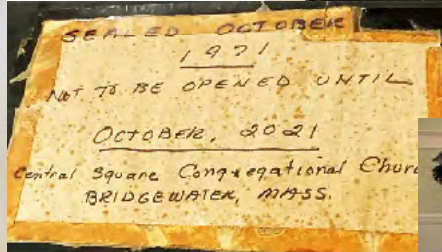 SEALED OCTOBER
1971
NOT TO BE OPENED UNTIL
OCTOBER, 2021
Central Square Congregational Churc
BRIDGEWATER, MASS.